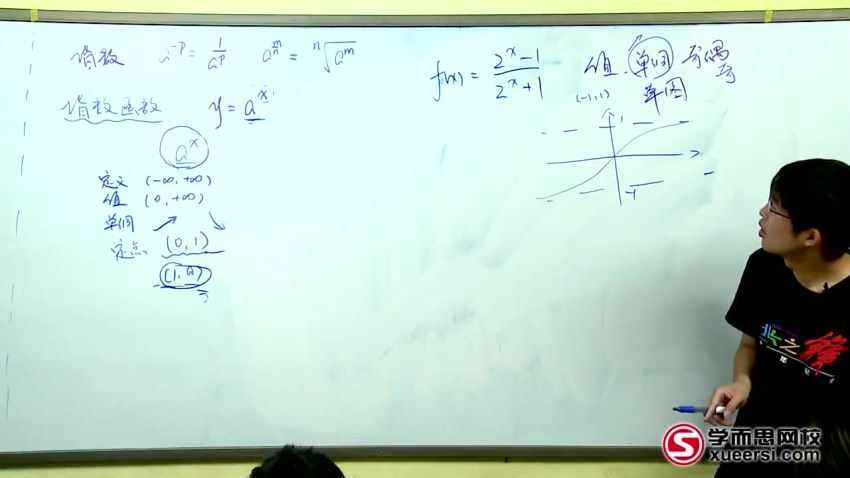 指数 a^{-p} = \frac{1}{a^p} a^{\frac{m}{n}} = \sqrt[n]{a^m}
指数函数 y = a^x
a^x
定义 (-∞, +∞)
值 (0, +∞)
单调
定点 (0, 1)
(1, a)
f(x) = \frac{2^x - 1}{2^x + 1}
值 单调 奇偶
(-1, 1) 单调 奇
1
-1
北
之
学而思网校
xueersi.com